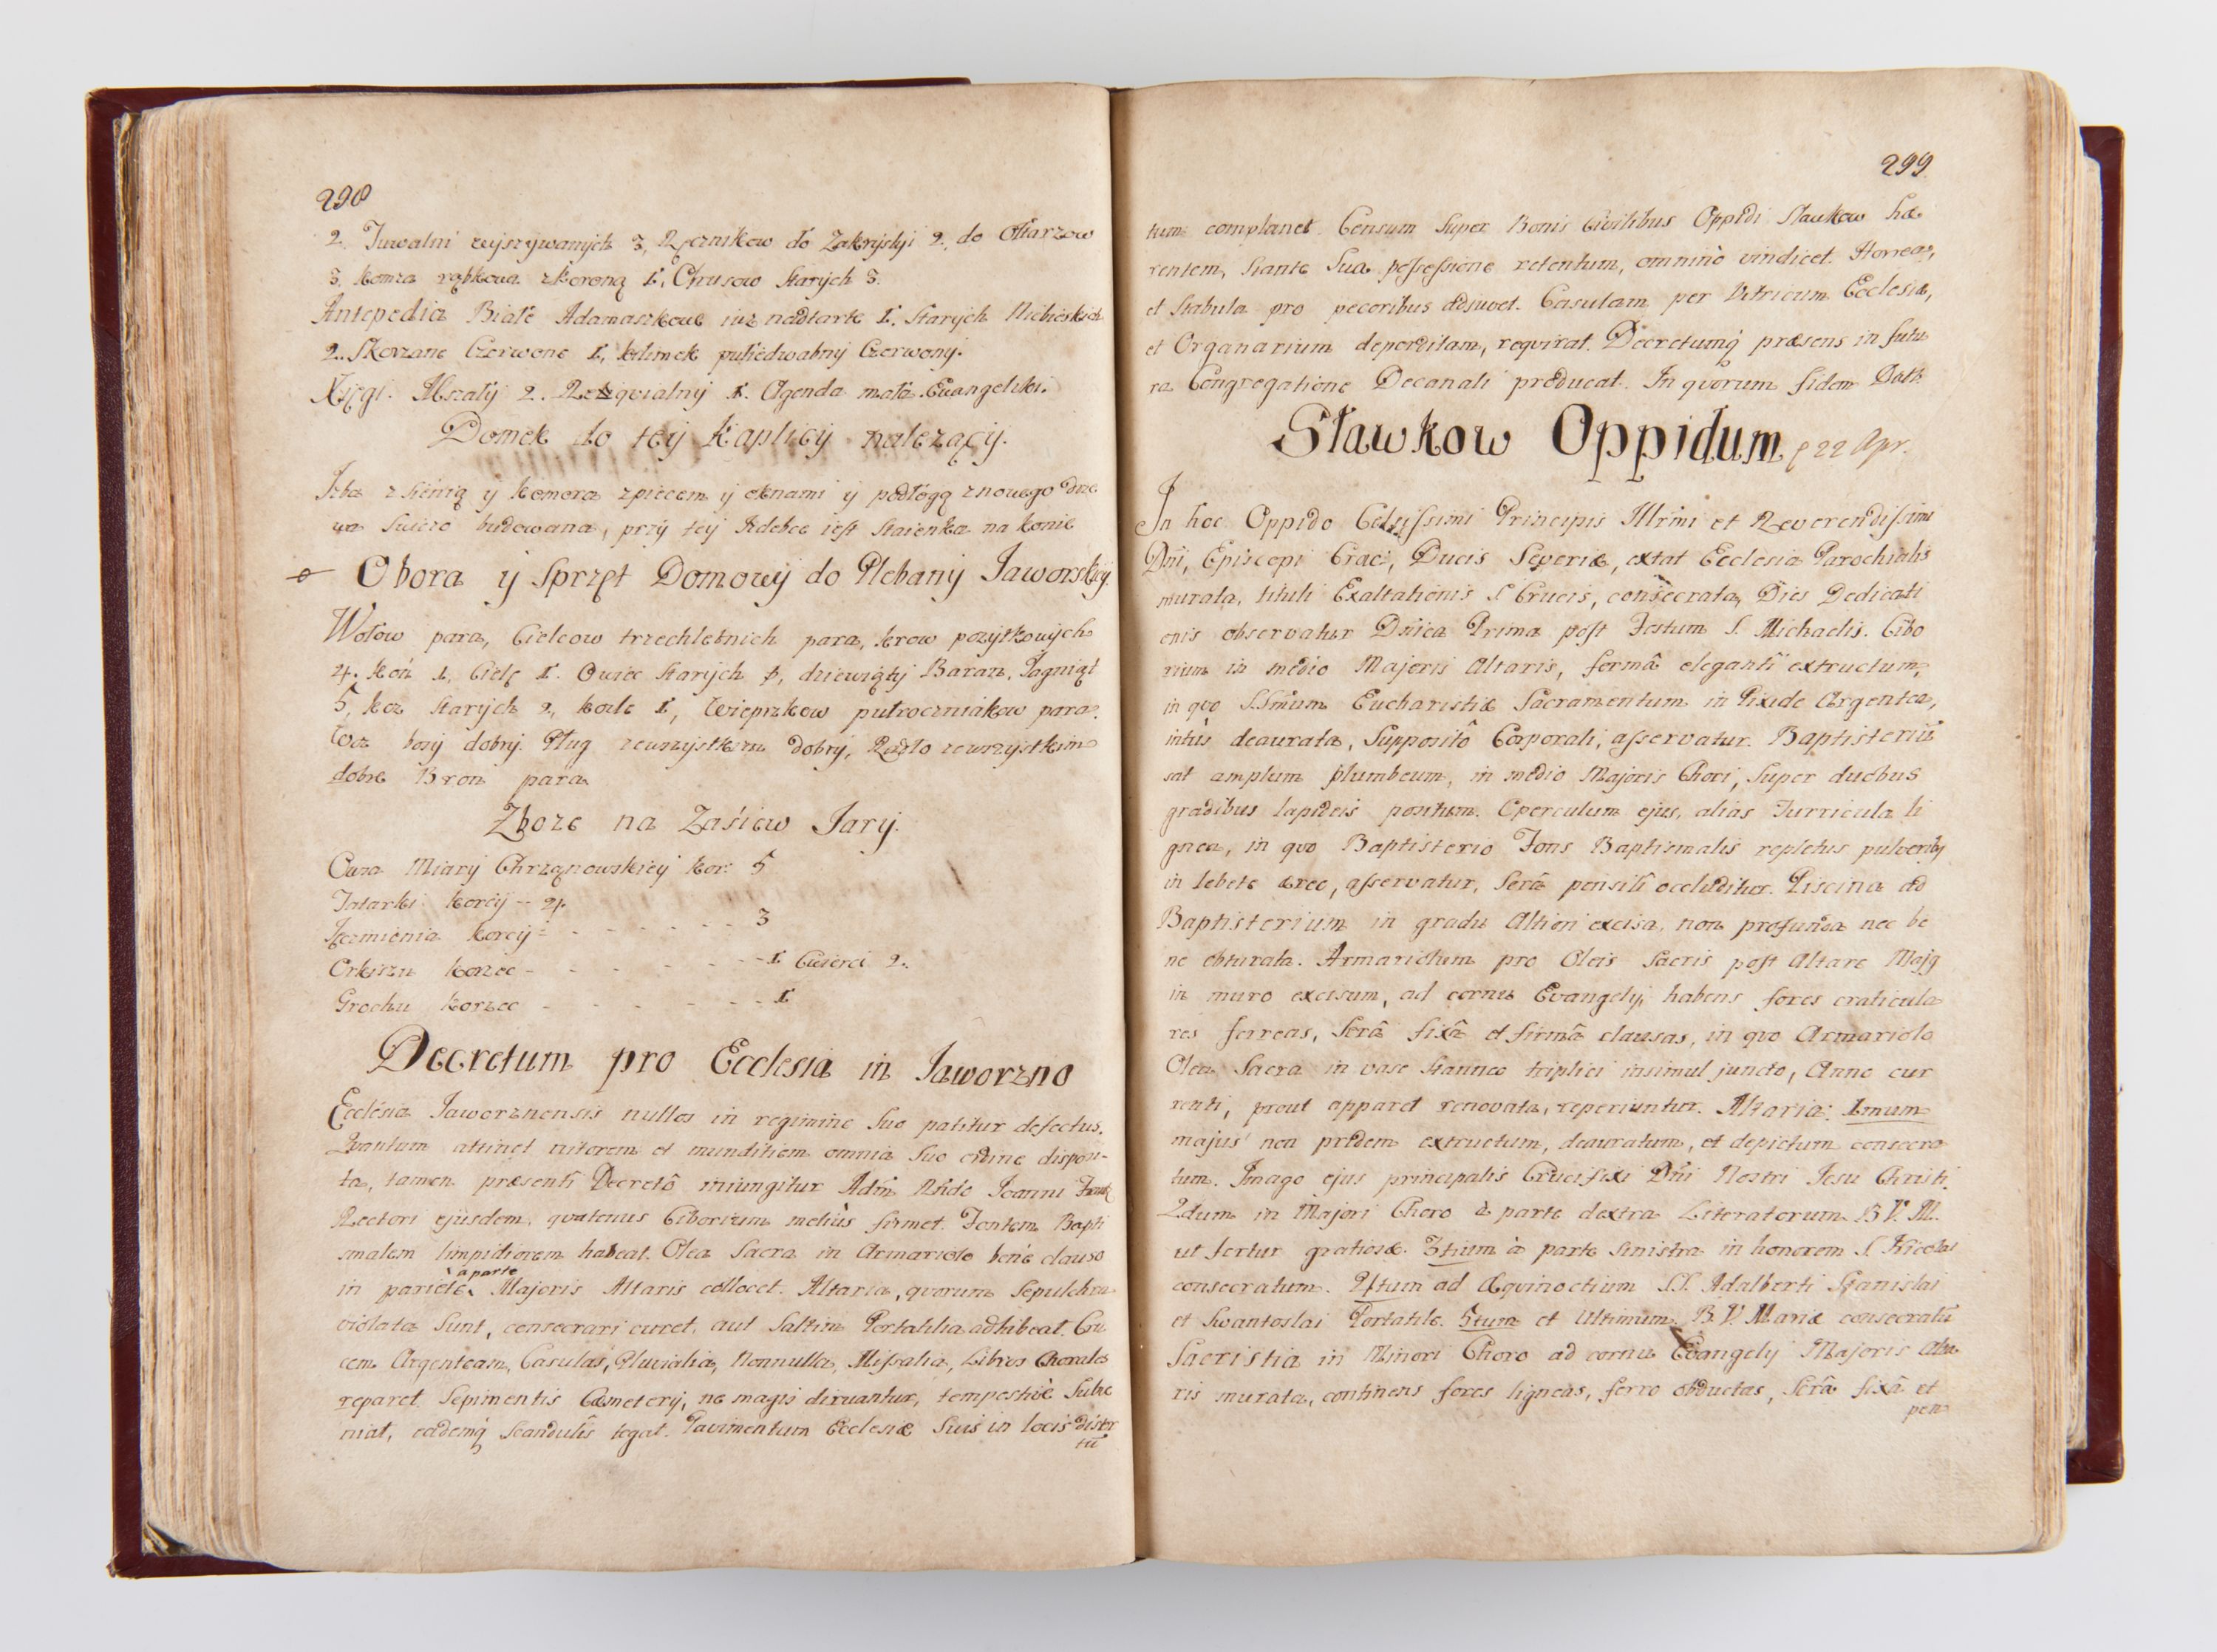 298
2. Tuwalni wyszywanych 3, Ręcznikow do Zakrystyi 2, do Ołtarzow
3. komza rąbkowa z koroną 1, Obrusow starych 3.
Antepedia Białe Adamaszkowe iuz nadtarte 1. Starych Niebieskich
2. Skorzane Czerwone 1, kilimek pułiedwabny Czerwony.
Xięgi. Mszały 2. Requialny 1. Agenda mała. Ewangeliki.
Domek do tey Kaplicy nalezący.
Izba z sienią y komora z piecem y oknami y podłogą z nowego drze
wa swiezo budowana, przy tey Izdebce iest staienka na konie
Obora y Sprzęt Domowy do Plebany Jaworskiy.
Wołow para, Cielcow trzechletnich para, krow pozytkowych
4. koń 1, Cielę 1. Owiec starych 8, dziewiąty Baran, Jagniąt
5, koz starych 2, kozle 1, Wieprzkow pułroczniakow para.
Woz bosy dobry. Pług zewszystkim dobry, Radło zewszystkim
dobre Bron para
Zboze na Zasiew Jary.
Owsa Miary Chrzanowskiey kor: 5
Tatarki korcy -- 4.
Jęczmienia korcy - - - - - - - 3
Orkiszu korzec - - - - - - 1 Cwierci 2.
Grochu korzec - - - - - - 1
Decretum pro Ecclesia in Jaworzno
Ecclesia Jaworznensis nullos in regimine suo patitur defectus.
Quantum attinet nitorem et munditiem omnia suo ordine disposi-
ta, tamen præsenti Decretô iniungitur Adm̃ Rñdo Joanni
Rectori ejusdem, quatenus Ciborium meliùs firmet. Fontem Bapti
smalem limpidiorem habeat. Olea Sacra in Armariolo benè clauso
in pariete à parte Majoris Altaris collocet. Altaria, quorum Sepulchra
violata sunt, consecrari curet, aut saltim Portatilia adhibeat. Cru
cem Argenteam, Casulas, Pluvialia, Nonnulla, Missalia, Libros Chorales
reparet. Sepimentis Cæmetery, ne magis diruantur, tempestivè subve
niat, eademq̃ scandulis tegat. Pavimentum Ecclesiæ suis in locis disrup
tũ
299
tum complanet. Censum super Bonis Civilibus Oppidi Sławkow hæ
rentem, stante sua possessione retentum, omninò vindicet. Horrea,
et stabula pro pecoribus adjuvet. Casulam per Vitricum Ecclesiæ,
et Organarium deperditam, requirat. Decretumq̃ præsens in futu
ra Congregatione Decanali producat. In quorum fidem Datt:
Sławkow Oppidum 22 Apr.
In hoc Oppido Celsissimi Principis Illr̃mi et Reverendissimi
Dñi, Episcopi Crac:, Ducis Severiæ, extat Ecclesia Parochialis
murata, tituli Exaltationis S. Crucis, consecrata, Dies Dedicati
onis observatur Dñica Prima post Festum S. Michaelis. Cibo
rium in medio Majoris Altaris, formâ eleganti extructum,
in quo SSmum Eucharistiæ Sacramentum in Pixide Argentea,
intùs deaurata, Suppositô Corporali, asservatur. Baptisteriũ
sat amplum plumbeum, in medio Majoris Chori, super duobus
gradibus lapideis positum. Operculum ejus, alias Turricula li
gnea, in quo Baptisterio Fons Baptismalis repletus pulveriby
in lebete æreo, asservatur, serâ pensili occluditur. Piscina ad
Baptisterium in gradu Altiori excisa, non profunda nec be
ne obturata. Armariolum pro Oleis Sacris post Altare Majg
in muro excisum, ad cornu Evangelij habens fores craticula
res ferreas, serâ fixâ et firmâ clausas, in quo Armariolo
Olea Sacra in vase stanneo triplici insimul juncto, Anno cur
renti, prout apparet renovata, reperiuntur. Altaria: 1mum
majus non pridem extructum, deauratum, et depictum consecra
tum. Imago ejus principalis Crucifixi Dñi Nostri Jesu Christi.
2dum in Majori Choro à parte dextra Literatorum B V. M.
ut fertur gratiosæ. 3tium à parte sinistra in honorem S. Nicolai
consecratum. 4tum ad Æquinoctium SS. Adalberti Stanislai
et Swantoslai Portatile. 5tum et Ultimum B V Mariæ consecratũ
Sacristia in Minori Choro ad cornu Evangely Majoris Alta
ris murata, continens fores ligneas, ferro obductas, serâ fixâ et
pen